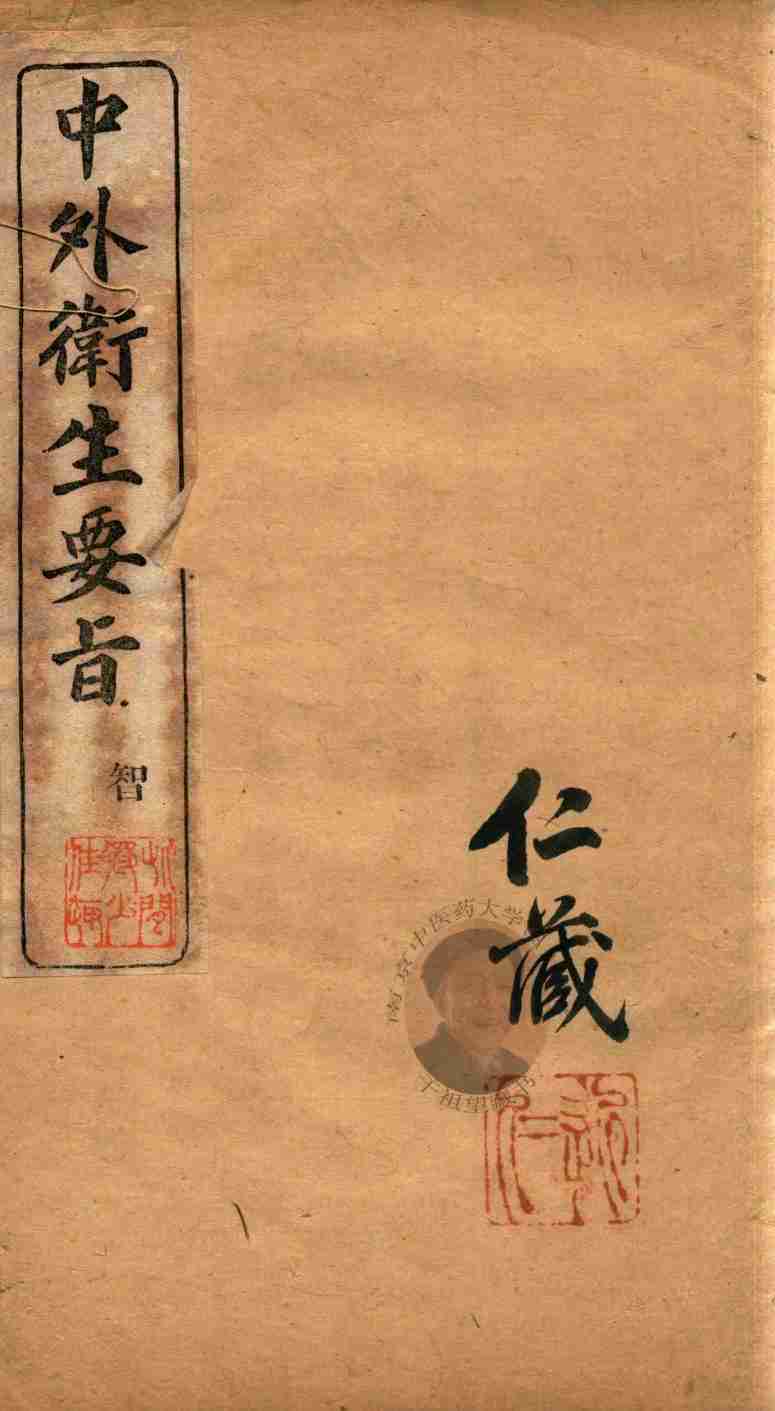 中外衛生要旨
智
仁藏
南京中医药大学
干祖望藏书